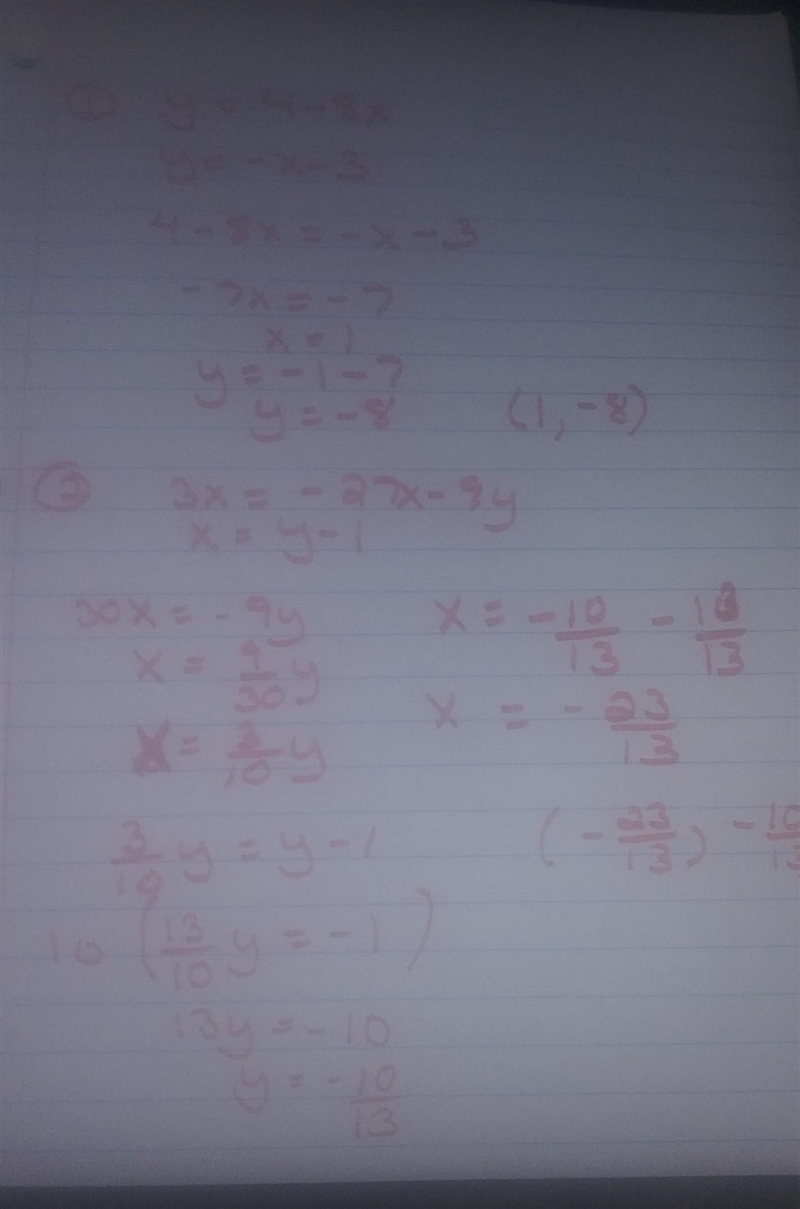 ① y = 4 - 8x
y = -x - 3
4 - 8x = -x - 3
-7x = -7
x = 1
y = -1 - 7
y = -8 (1, -8)
② 3x = -27x - 9y
x = y - 1
30x = -9y
x = 9/30 y
x = 3/10 y
3/10 y = y - 1
10 (13/10 y = -1)
13y = -10
y = -10/13
x = -10/13 - 13/13
x = -23/13
(-23/13) -10/13